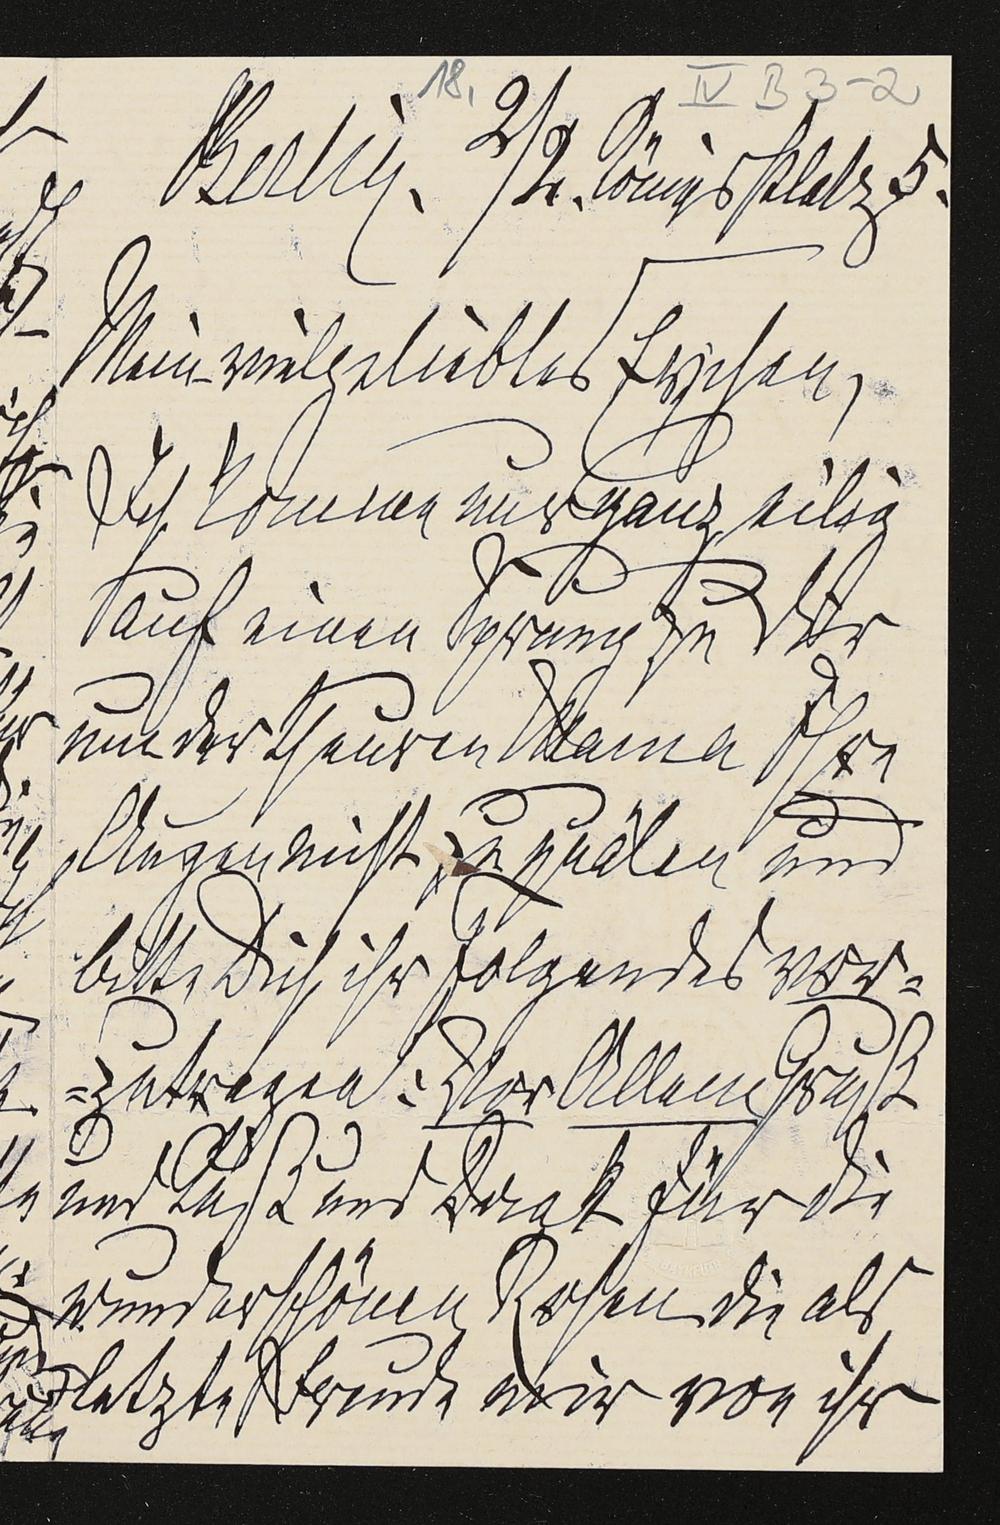 18, IV B 3-2
Berlin, 2/2. Königsplatz 5.
Mein vielgeliebtes Evchen,
Ich komme nur ganz eilig
auf einen Sprung zu Dir
um der theuren Mama Ihre
Augen nicht zu quälen und
bitte Dich ihr Folgendes vor=
=zutragen: Vor Allem Gruß
und Kuß und Dank für die
wunderschönen Rosen die als
letzte Freude mir von ihr